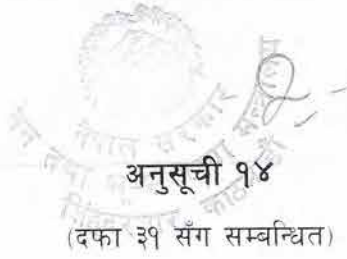 नेपाल सरकार
अनुसूची १४
(दफा ३१ सँग सम्बन्धित)